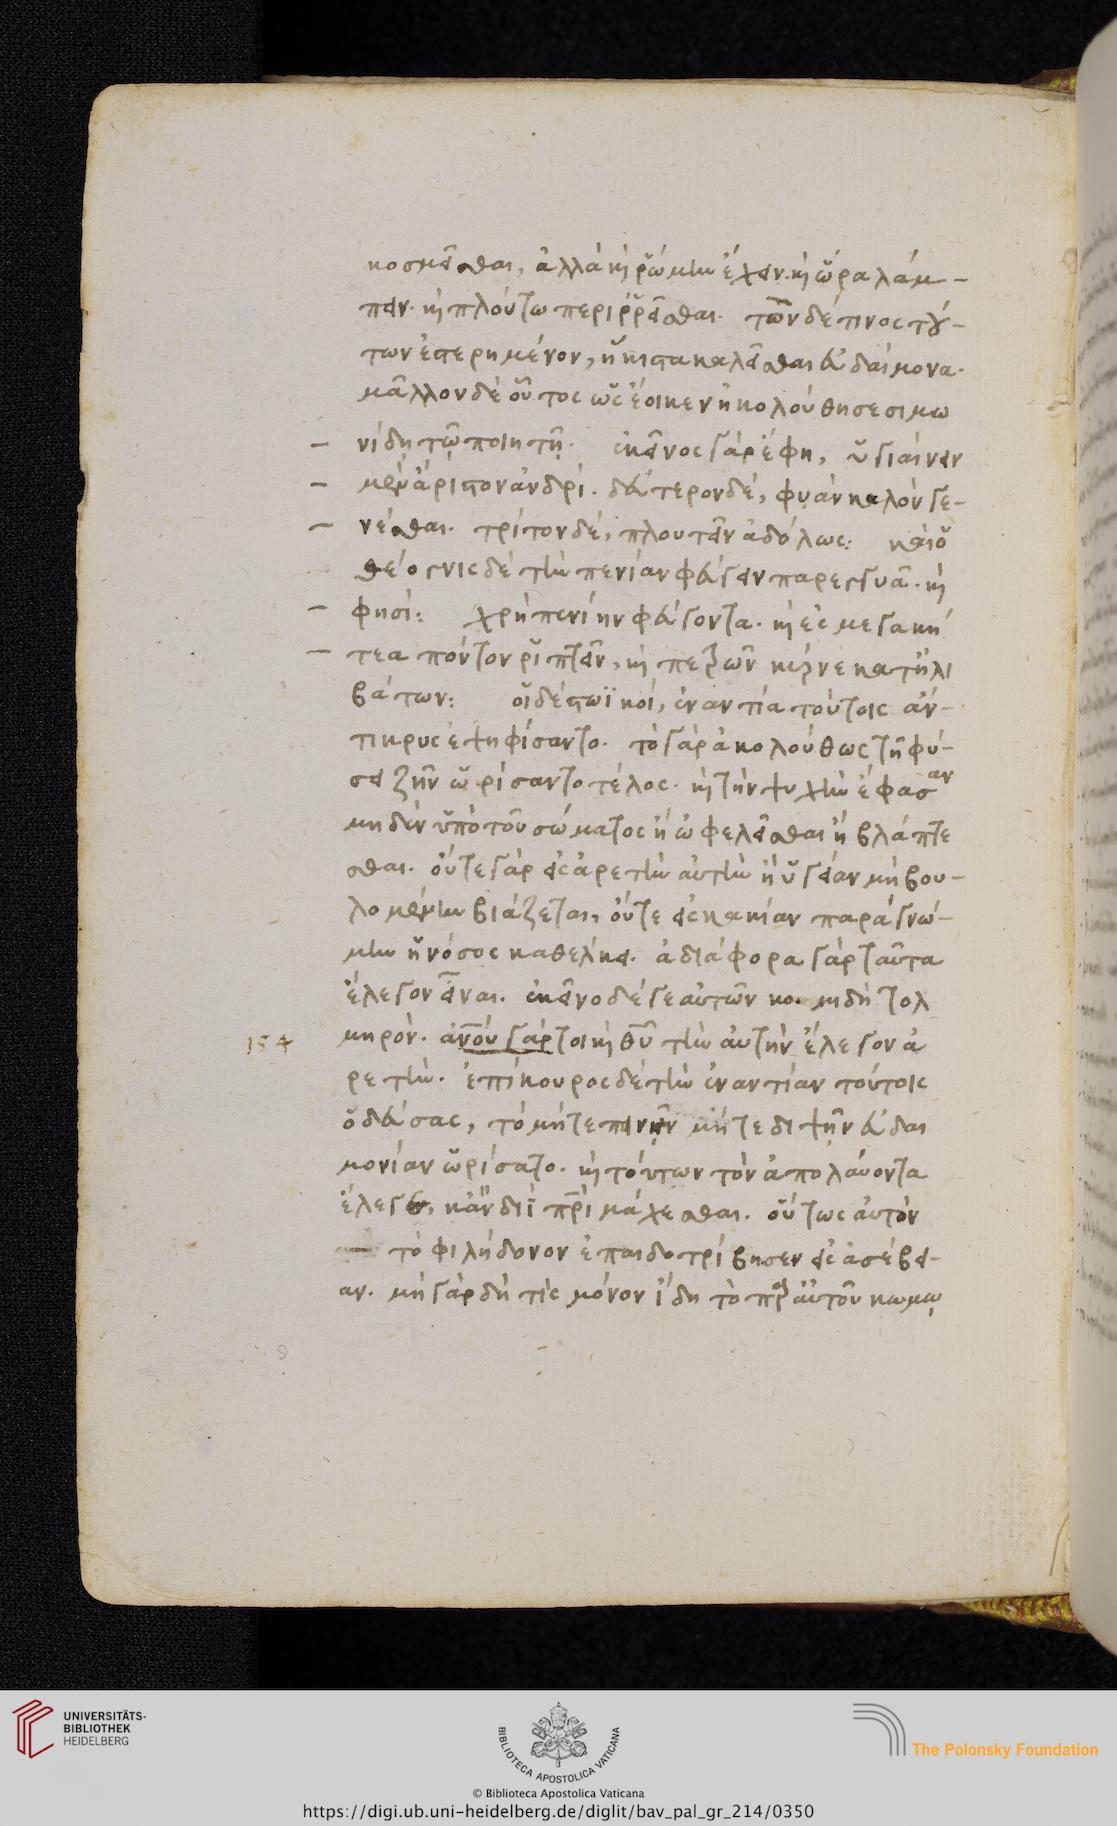 κοσμεῖσθαι, ἀλλὰ κὴ ῥώμην ἔχειν. κὴ ὥρα λάμ-
πειν. κὴ πλούτω περιρρεῖσθαι. τῶν δέ τινος τού-
των ἐστερημένον, ἥκιστα καλεῖσθαι εὐδαίμονα.
μᾶλλον δὲ οὗτος ὡς ἔοικεν ἠκολούθησε σιμω
νίδη τῷ ποιητῇ. ἐκεῖνος γὰρ ἔφη, ὑγιαίνειν
μὲν ἄριστον ἀνδρί. δεύτερον δέ, φυὰν καλὸν γε-
νέσθαι. τρίτον δέ, πλουτεῖν ἀδόλως: καὶ ὁ
θέογνις δὲ τὴν πενίαν φεύγειν παρεγγυᾶ. κὴ
φησί: χρὴ πενίην φεύγοντα. κὴ ἐς μεγακή
τεα πόντον ῥιπτεῖν, κὴ πετρῶν κύρνε κατ ἠλι
βάτων: οἱ δὲ στωϊκοί, ἐναντία τούτοις ἀν-
τικρυς ἐψηφίσαντο. τὸ γὰρ ἀκολούθως τῇ φύ-
σει ζῆν ὡρίσαντο τέλος. κὴ τὴν ψυχὴν ἔφασαν
μηδὲν ὑπὸ τοῦ σώματος ἢ ὠφελεῖσθαι ἢ βλάπτε
σθαι. οὔτε γὰρ εἰς ἀρετὴν αὐτὴν ἡ ὑγεία μὴ βου-
λομένην βιάζεται, οὔτε εἰς κακίαν παρὰ γνώ-
μην ἡ νόσος καθέλκει. ἀδιάφορα γὰρ ταῦτα
ἔλεγον εἶναι. ἐκεῖνο δέ γε αὐτῶν κομιδῇ τολ
154 μηρόν. ἀνου γάρ τοι κὴ θυ τὴν αὐτὴν ἔλεγον ἀ
ρετήν. ἐπίκουρος δὲ τὴν ἐναντίαν τούτοις
ὁδεύσας, τὸ μήτε πεινῆν μήτε διψῆν εὐδαι
μονίαν ὡρίσατο. κὴ τούτων τὸν ἀπολαύοντα
ἔλεγε, κἂν διῒ πρὶ μάχεσθαι. οὕτως αὐτὸν
τὸ φιλήδονον ἐπαιδοτρίβησεν εἰς ἀσέβει-
αν. μὴ γὰρ δή τις μόνον ἴδη τὸ πρ αὐτοῦ κωμω
UNIVERSITÄTS-
BIBLIOTHEK
HEIDELBERG
BIBLIOTECA APOSTOLICA VATICANA
The Polonsky Foundation
© Biblioteca Apostolica Vaticana
https://digi.ub.uni-heidelberg.de/diglit/bav_pal_gr_214/0350